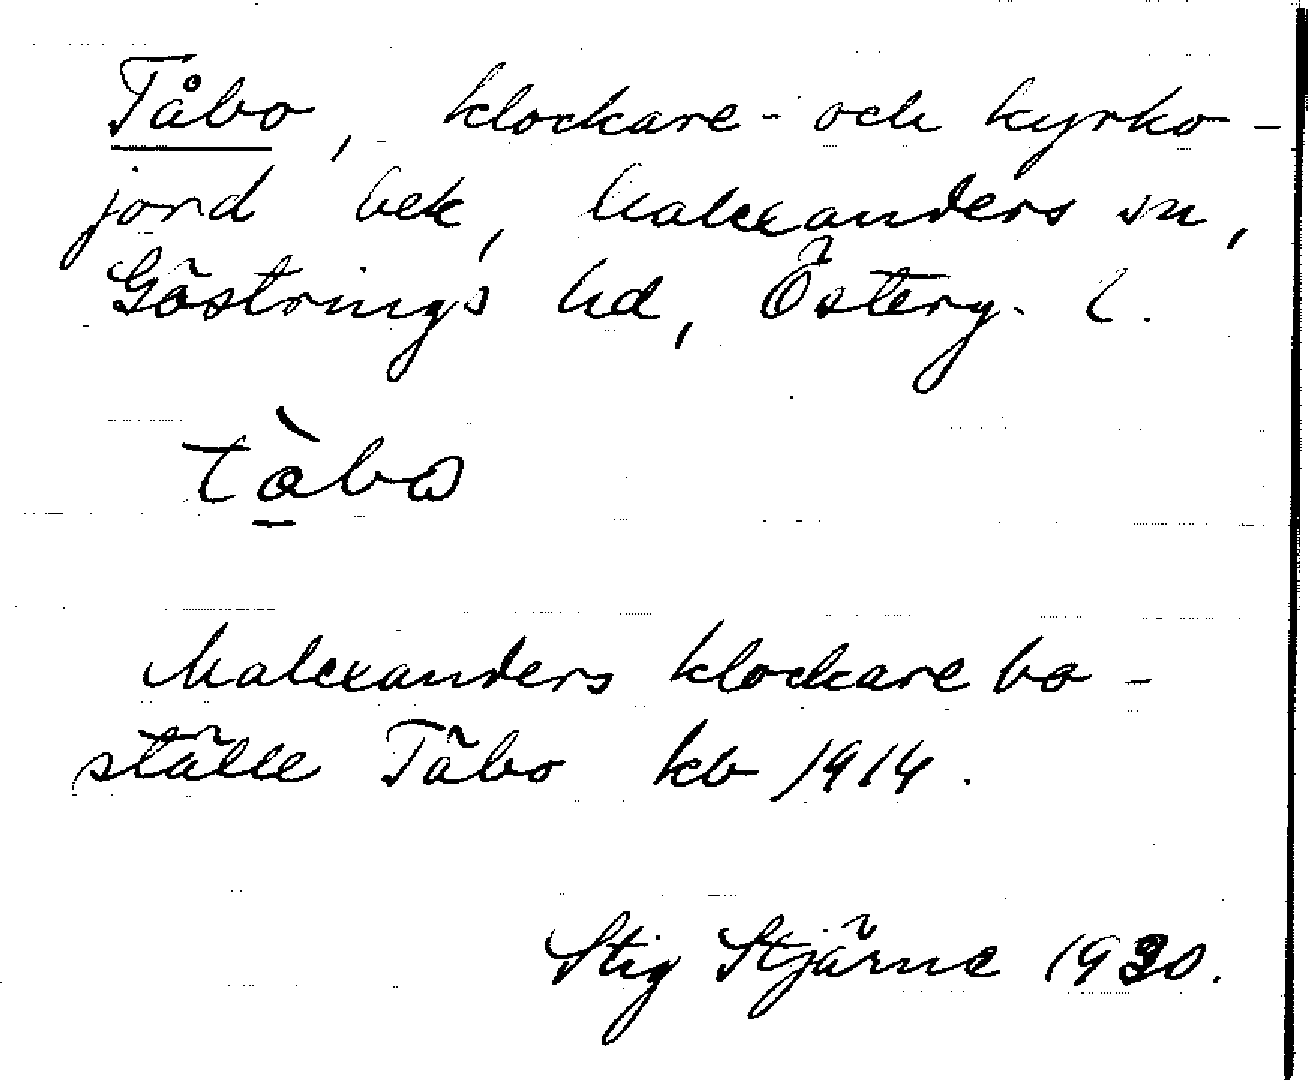 Tåbo, klockare- och kyrko-
jord bek, Malexanders sn,
Göstrings hd, Österg. l.
tàbω
Malexanders klockarebo-
ställe Tåbo kb 1914.
Stig Stjärne 1930.